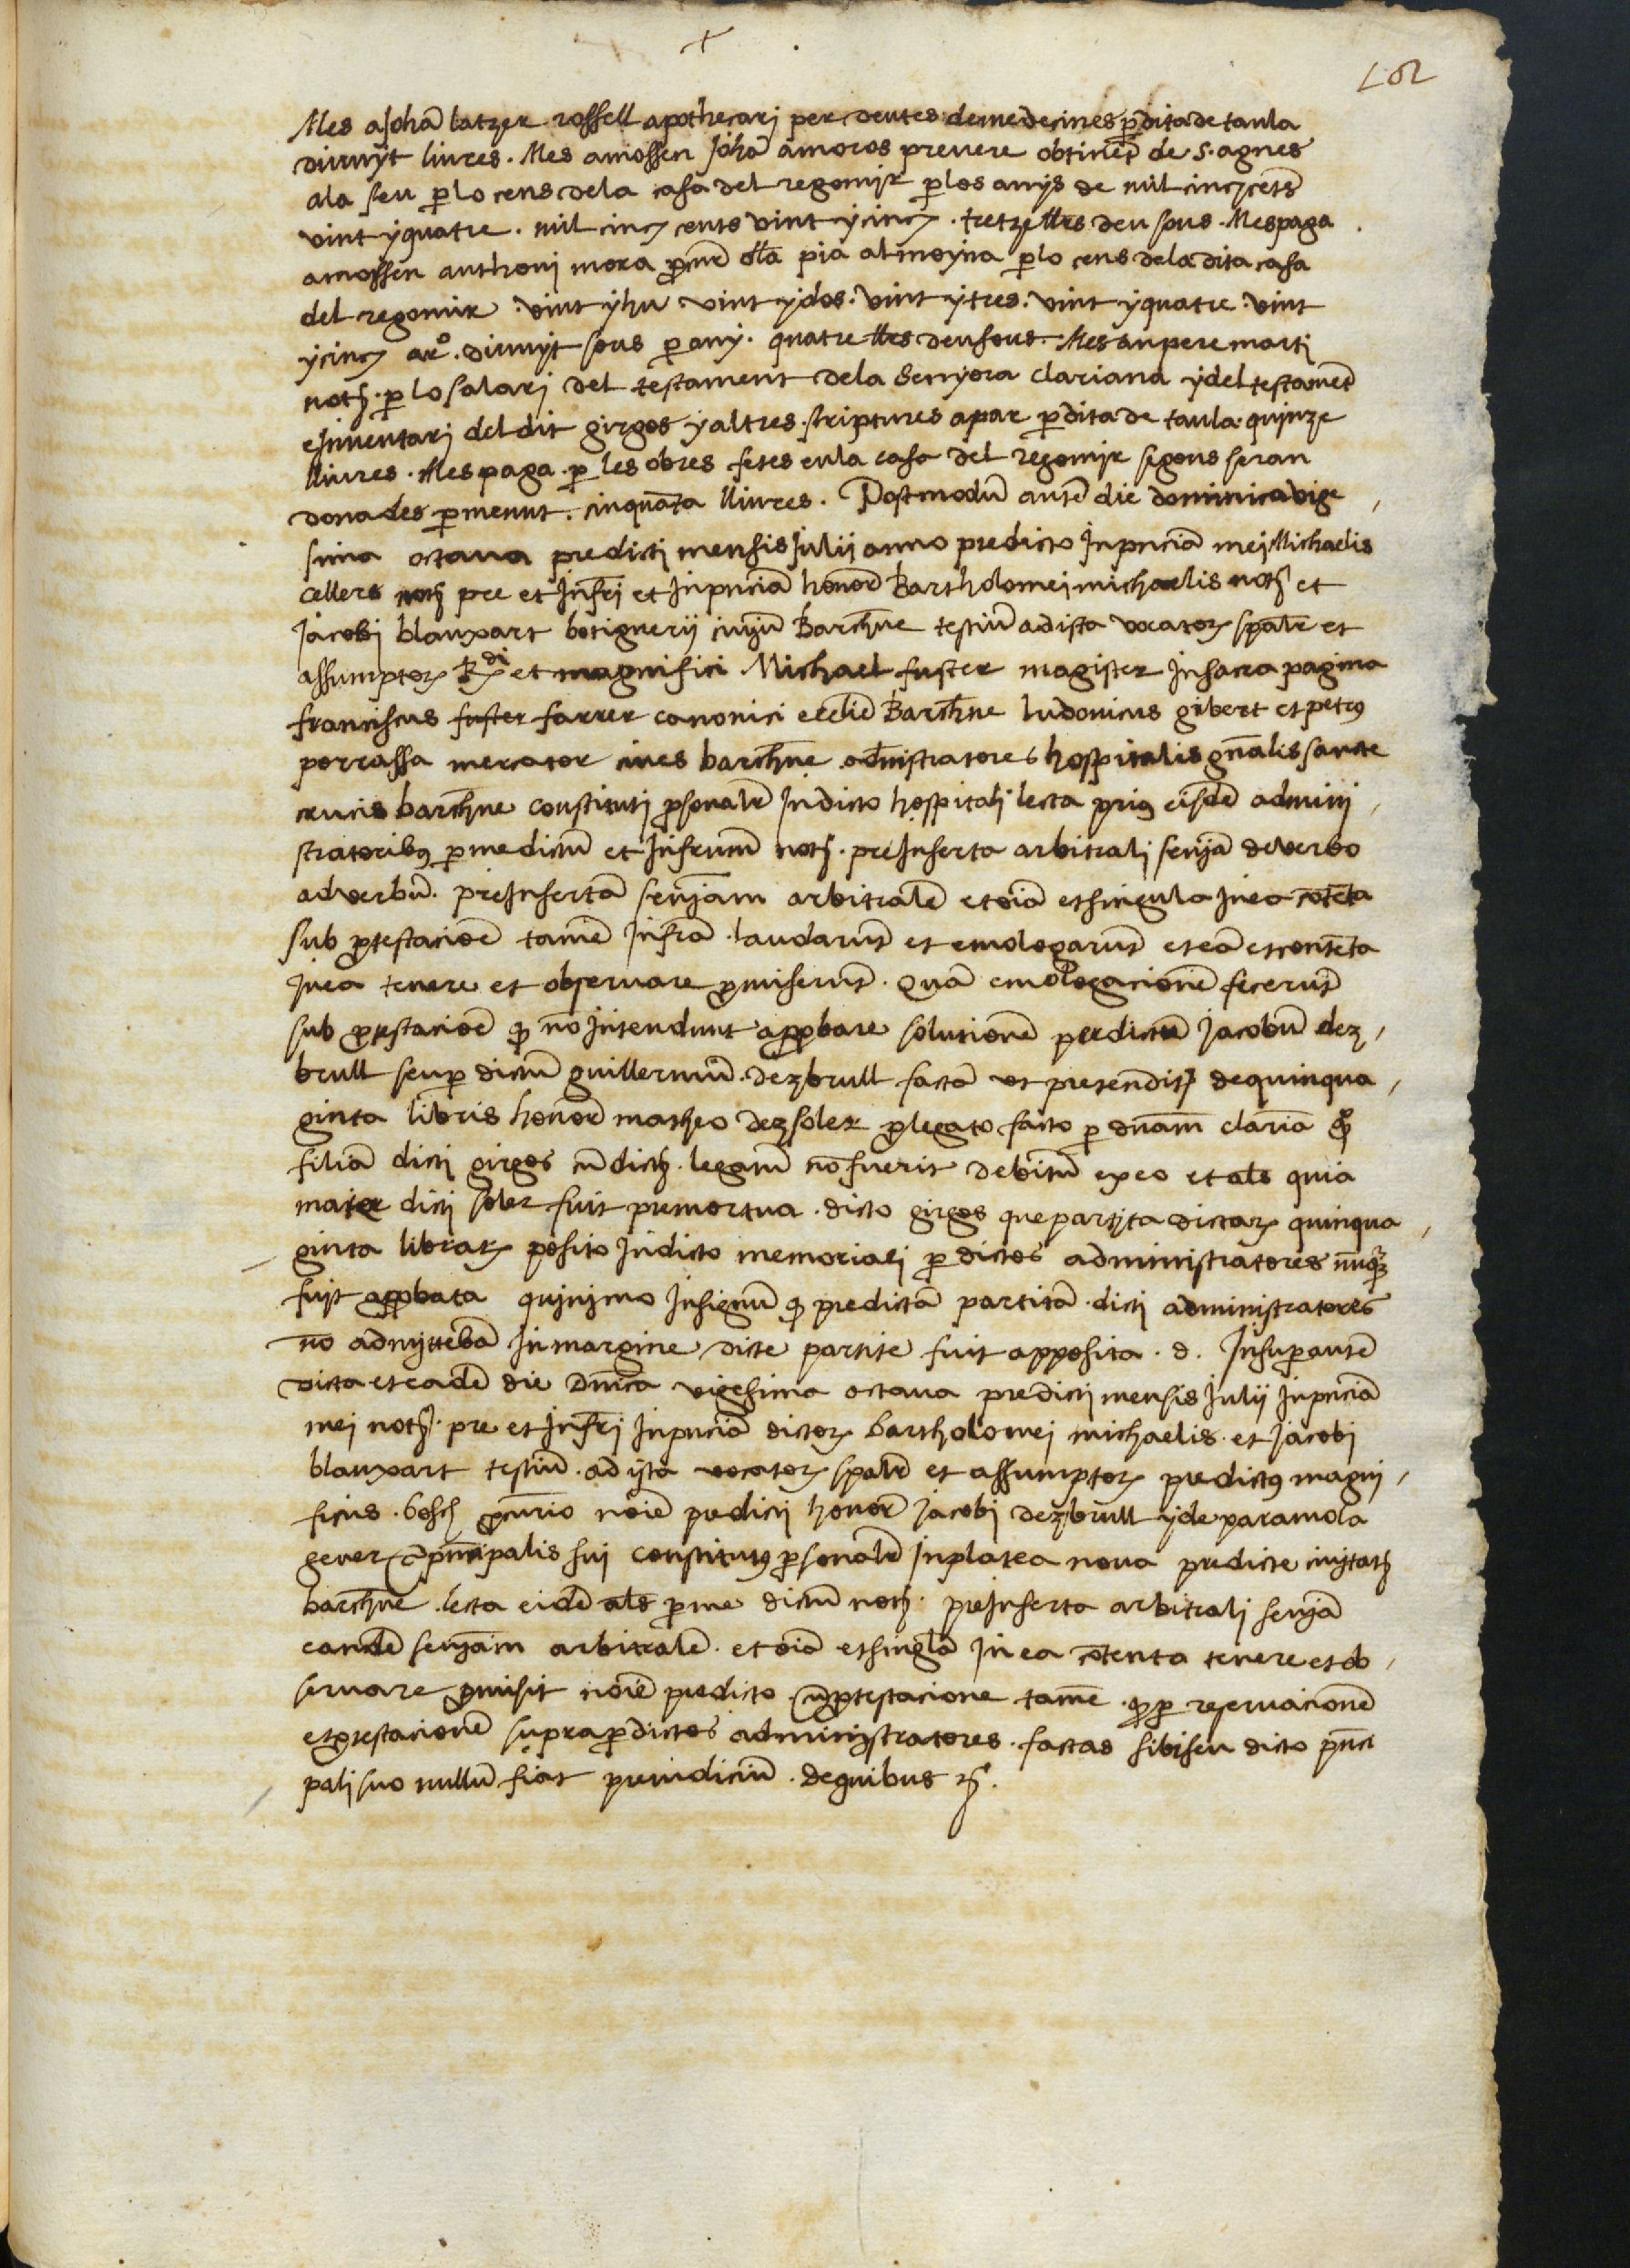 +
162
Mes a Johā latzer rossell apothecari per deutes de medecines p̱ dita de taula
divuyt liures . Mes a mossen Johā amoros preuere obtinēt de s. agnes
a la seu p̱ lo cens de la casa del regomir p̱ los anys de mil cincz cēts
vint y quatre . mil cincz cents vint y cincz . tretze llrs deu sous . Mes paga
a mossen anthoni mora ꝓcur̄ dla pia almoyna p̱ lo cens de la dita casa
del regomir . vint y hu . vint y dos . vint y tres . vint y quatre . vint
y cincz arº . divuyt sous p̱ any . quatre llrs deu sous . Mes an pere marti
notꝭ . p̱ lo salari del testament de la Senyora clariana y del testamēt
e Inuentari del dit girgos y altres scriptures apar p̱ dita de taula . quinze
lliures . Mes paga p̱ les obres fetes en la casa del regomir segons seran
donades p̱ menut . cinquāta lliures . Postmodū autē die dominica vige
sima octaua predicti mensis Julij anno predicto In pn̄cia mei Michaelis
cellers notꝭ pre et Infr̄i et In pn̄cia honor̄ Bartholomei michaelis notꝭ et
Jacobi blanxart botiguerij ciuiū Barchn̄e testiū ad ista vocatorꝝ spāl̄r et
assumptorꝝ Rdi et magnifici Michael fuster magister In sacra pagina
franciscus fuster farrer canonici eccl̄ie Barchn̄e ludouicus gibert et petrꝯ
porrassa mercator ciues barchn̄e adm̄istratores hospitalis gn̄alis sancte
crucis barchn̄e constituti ꝑsonalr̄ In dicto hospitali lecta priꝯ eisdē admini
stratoribꝯ p̱ me dictum et Infrm̄ notꝭ . preInserta arbitrali sen̄ia de verbo
ad verbū . preInsertā sen̄iam arbitralē et oīa et singula In ea cōtēta
sub ꝓtestacioē tamē Infrā . laudarūt et emologarūt et eā et contēta
In ea tenere et obseruare ꝓmiserūt . Quā emologacionē fecerūt
sub ꝓtestacioē qꝫ nō Intendunt apꝓbare solutionē p̱ dictū Jacobū dez
brull seu p̱ dictū guillermū dezbrull factā vt pretenditꝭ de quinqua
ginta libris honor̄ matheo dez soler ꝓ legato facto p̱ dn̄am clariā qº
filiā dicti girgos cū dictꝭ . legatū nō fuerit debitū ex eo et als quia
mater dicti soler fuit premortua . dicto girgos que partita dictarꝝ quinqua
ginta librarꝝ posito In dicto memoriali p̱ dictos administratores nūqꝫ
fuit apꝓbata quinimo In signū qꝫ predictā partitā dicti administratores
nō admittebā In margine dicte partite fuit apposita . d . Insup̱ autē
dicta et eadē die Dn̄ica vigesima octaua predicti mensis Julij In pn̄cia
mei notꝭ . pre et Infr̄i In pn̄cia dictorꝝ bartholomei michaelis et Jacobi
blanxart testiū . ad ista vocatorꝝ spāl̄r et assumptorꝝ predictꝯ magni
ficus bosch ꝓcur̄io noīe predicti honor̄ Jacobi dezbrull y de paramola
gener prīcipalis sui constitutꝯ ꝑsonalr̄ In platea noua predicte ciuitatꝭ
barchn̄e . lecta eidē als p̱ me dictū notꝭ . preInserta arbitrali sen̄ia
eandē sen̄iam arbitralē . et oīa et singlā In ea cōtenta tenere et ob
seruare ꝓmisit noīe predicto cū ꝓtestacione tamē qꝫ p̱ reseruacionē
et ꝓtestacionē supra p̱ dictos administratores . factas sibi seu dicto prīci
pali suo nullū fiat preiudiciū . de quibus &c.